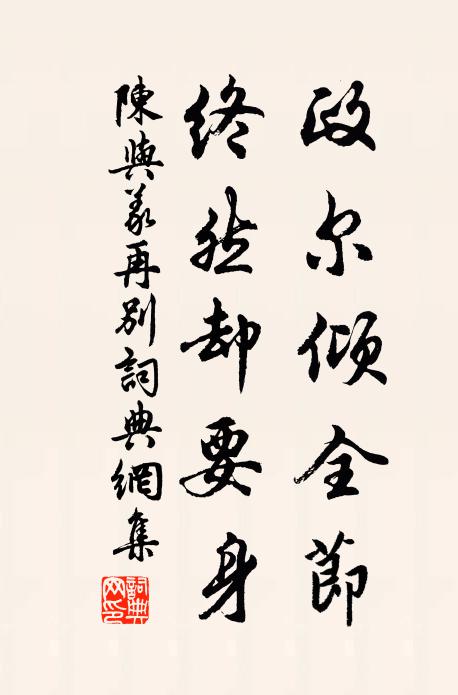 政尔倾全節
终然却要身
陳與义再别詞典網集
詞典网印